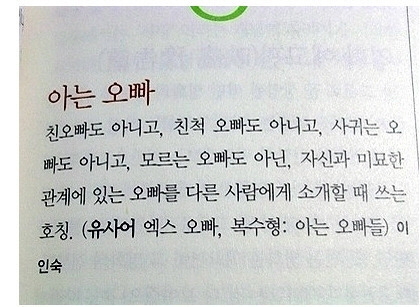 아는 오빠
친오빠도 아니고, 친척 오빠도 아니고, 사귀는 오
빠도 아니고, 모르는 오빠도 아닌, 자신과 미묘한
관계에 있는 오빠를 다른 사람에게 소개할 때 쓰는
호칭. (유사어 엑스 오빠, 복수형: 아는 오빠들) 이
인숙